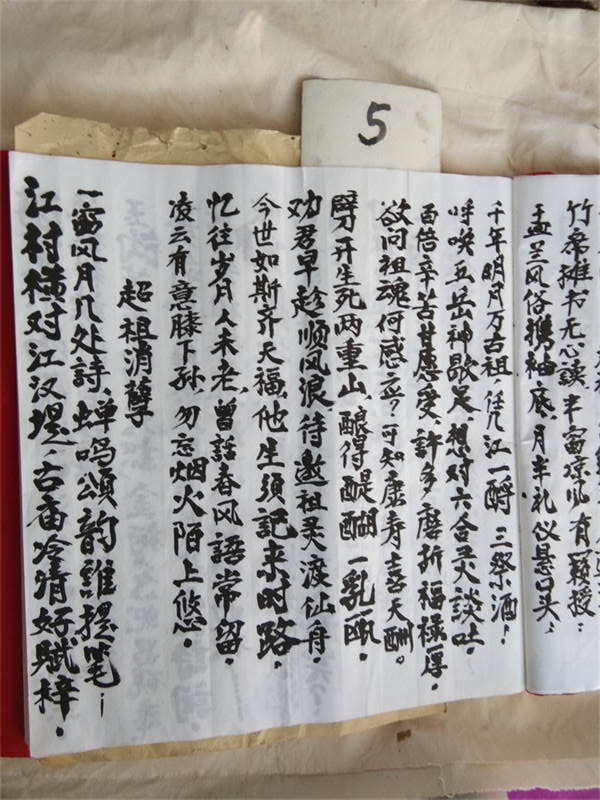 5
竹席摊书无心读半窗凉风有籁授:
盂兰风俗携袖底,月半礼仪悬口头,
千年明月万古祖,凭江一酹三祭酒!
呼唤五岳神歇足,想对六合灵談吐.
百倍辛苦甘愿受,許多磨折福禄厚.
欲问祖魂何感应?可知康寿喜天酬。
劈开生死两重山,酿得醍醐一乳瓯.
劝君早趁顺风浪,待邀祖灵渡仙舟.
今世如斯齐天福,他生须记来时路.
忆往岁月人未老,曾話春风語常留.
凌云有意膝下孙,勿忘烟火陌上悠.
超祖消孽
一窗风月几处詩,蝉鸣頌韵誰提笔!
江村横对江汉堤,古庙冷清好賦梓.